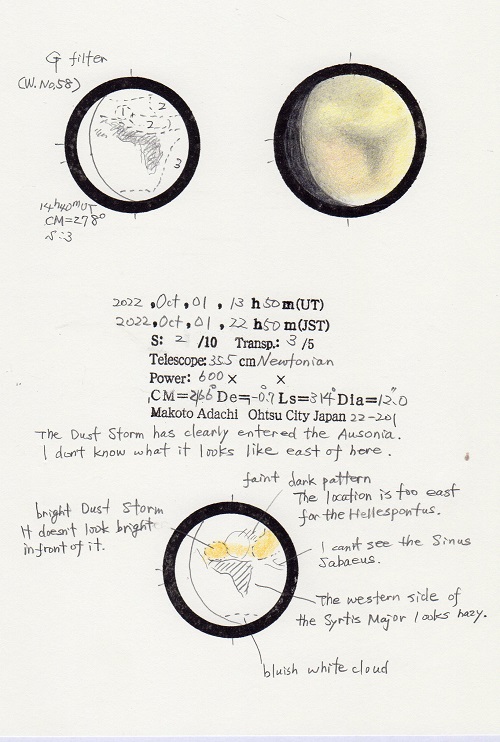 G filter
(W.No,58)
1 2
2
3
14h40mUT
CM=278°
S:3
2022 ,Oct , 01 , 13 h 50 m(UT)
2022, Oct, 01 , 22 h 50 m(JST)
S: 2 /10 Transp.: 3 /5
Telescope: 355 cm Newtonian
Power: 600 × ×
CM=266° De=-0.7° Ls=314° Dia=12.0"
Makoto Adachi Ohtsu City Japan 22-201
The Dust Storm has clearly entered the Ausonia.
I don't know what it looks like east of here.
faint dark pattern
The location is too east
for the Hellespontus.
bright Dust Storm
It doesn't look bright
in front of it.
I can't see the Sinus
Sabaeus.
The western side of
the Syrtis Major looks hazy.
bluish white cloud